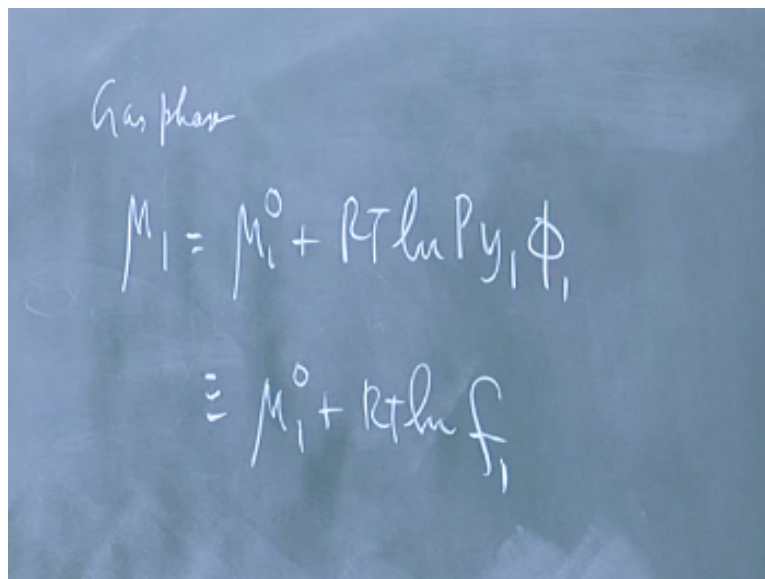 Gas phase
μ₁ = μ₁⁰ + RT ln P y₁ ϕ₁
≡ μ₁⁰ + RT ln f₁